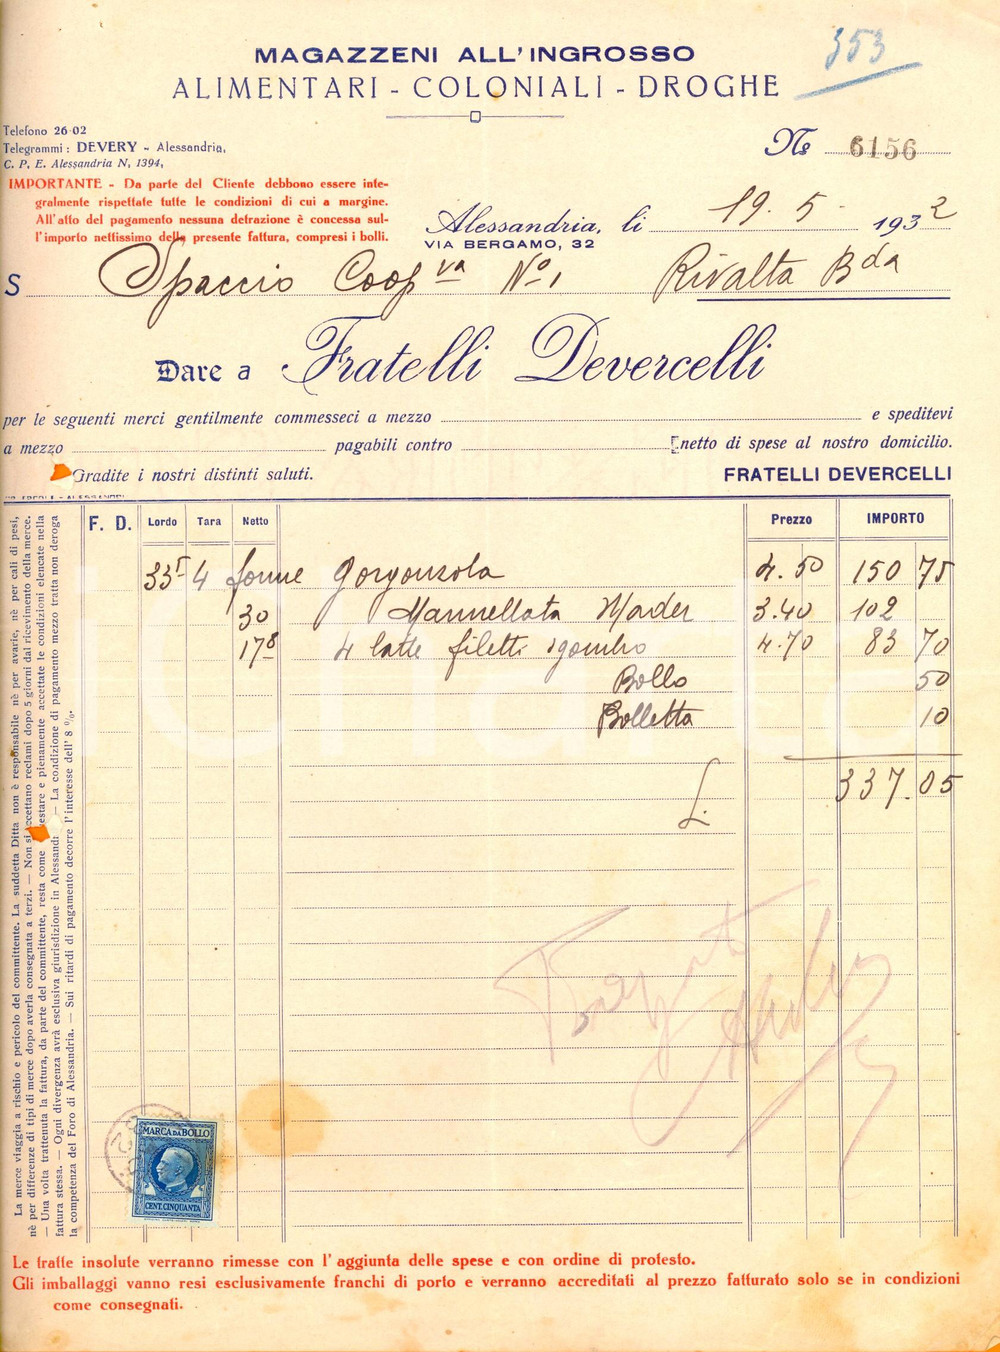 MAGAZZENI ALL'INGROSSO
353
ALIMENTARI - COLONIALI - DROGHE
Telefono 26-02
Telegrammi: DEVERY - Alessandria,
C. P. E. Alessandria N, 1394,
No 6156
IMPORTANTE - Da parte del Cliente debbono essere inte-
gralmente rispettate tutte le condizioni di cui a margine.
All'atto del pagamento nessuna detrazione è concessa sul-
l'importo nettissimo della presente fattura, compresi i bolli.
Alessandria, li 19. 5 - 1932
VIA BERGAMO, 32
S Spaccio Coopva No 1 Rivalta Bda
Dare a Fratelli Devercelli
per le seguenti merci gentilmente commesseci a mezzo e speditevi
a mezzo pagabili contro netto di spese al nostro domicilio.
Gradite i nostri distinti saluti. FRATELLI DEVERCELLI
F. D. Lordo Tara Netto Prezzo IMPORTO
335 4 forme Gorgonzola 4.50 150 75
30 Marmellata 3.40 102
178 4 latte filetti sgombro 4.70 83 70
Bollo 50
Bolletta 10
L. 337.05
La merce viaggia a rischio e pericolo del committente. La suddetta Ditta non è responsabile nè per avarie, nè per cali di pesi,
nè per differenze di tipi di merce dopo averla consegnata a terzi. — Non si accettano reclami dopo 5 giorni dal ricevimento della merce.
— Una volta trattenuta la fattura, da parte del committente, resta come e pienamente accettate le condizioni elencate nella
fattura stessa. — Ogni divergenza avrà esclusiva giurisdizione in — La condizione di pagamento mezzo tratta non deroga
la competenza del Foro di Alessandria. — Sui ritardi di pagamento decorre l'interesse dell'8 %.
MARCA DA BOLLO
CENT. CINQUANTA
Le tratte insolute verranno rimesse con l'aggiunta delle spese e con ordine di protesto.
Gli imballaggi vanno resi esclusivamente franchi di porto e verranno accreditati al prezzo fatturato solo se in condizioni
come consegnati.